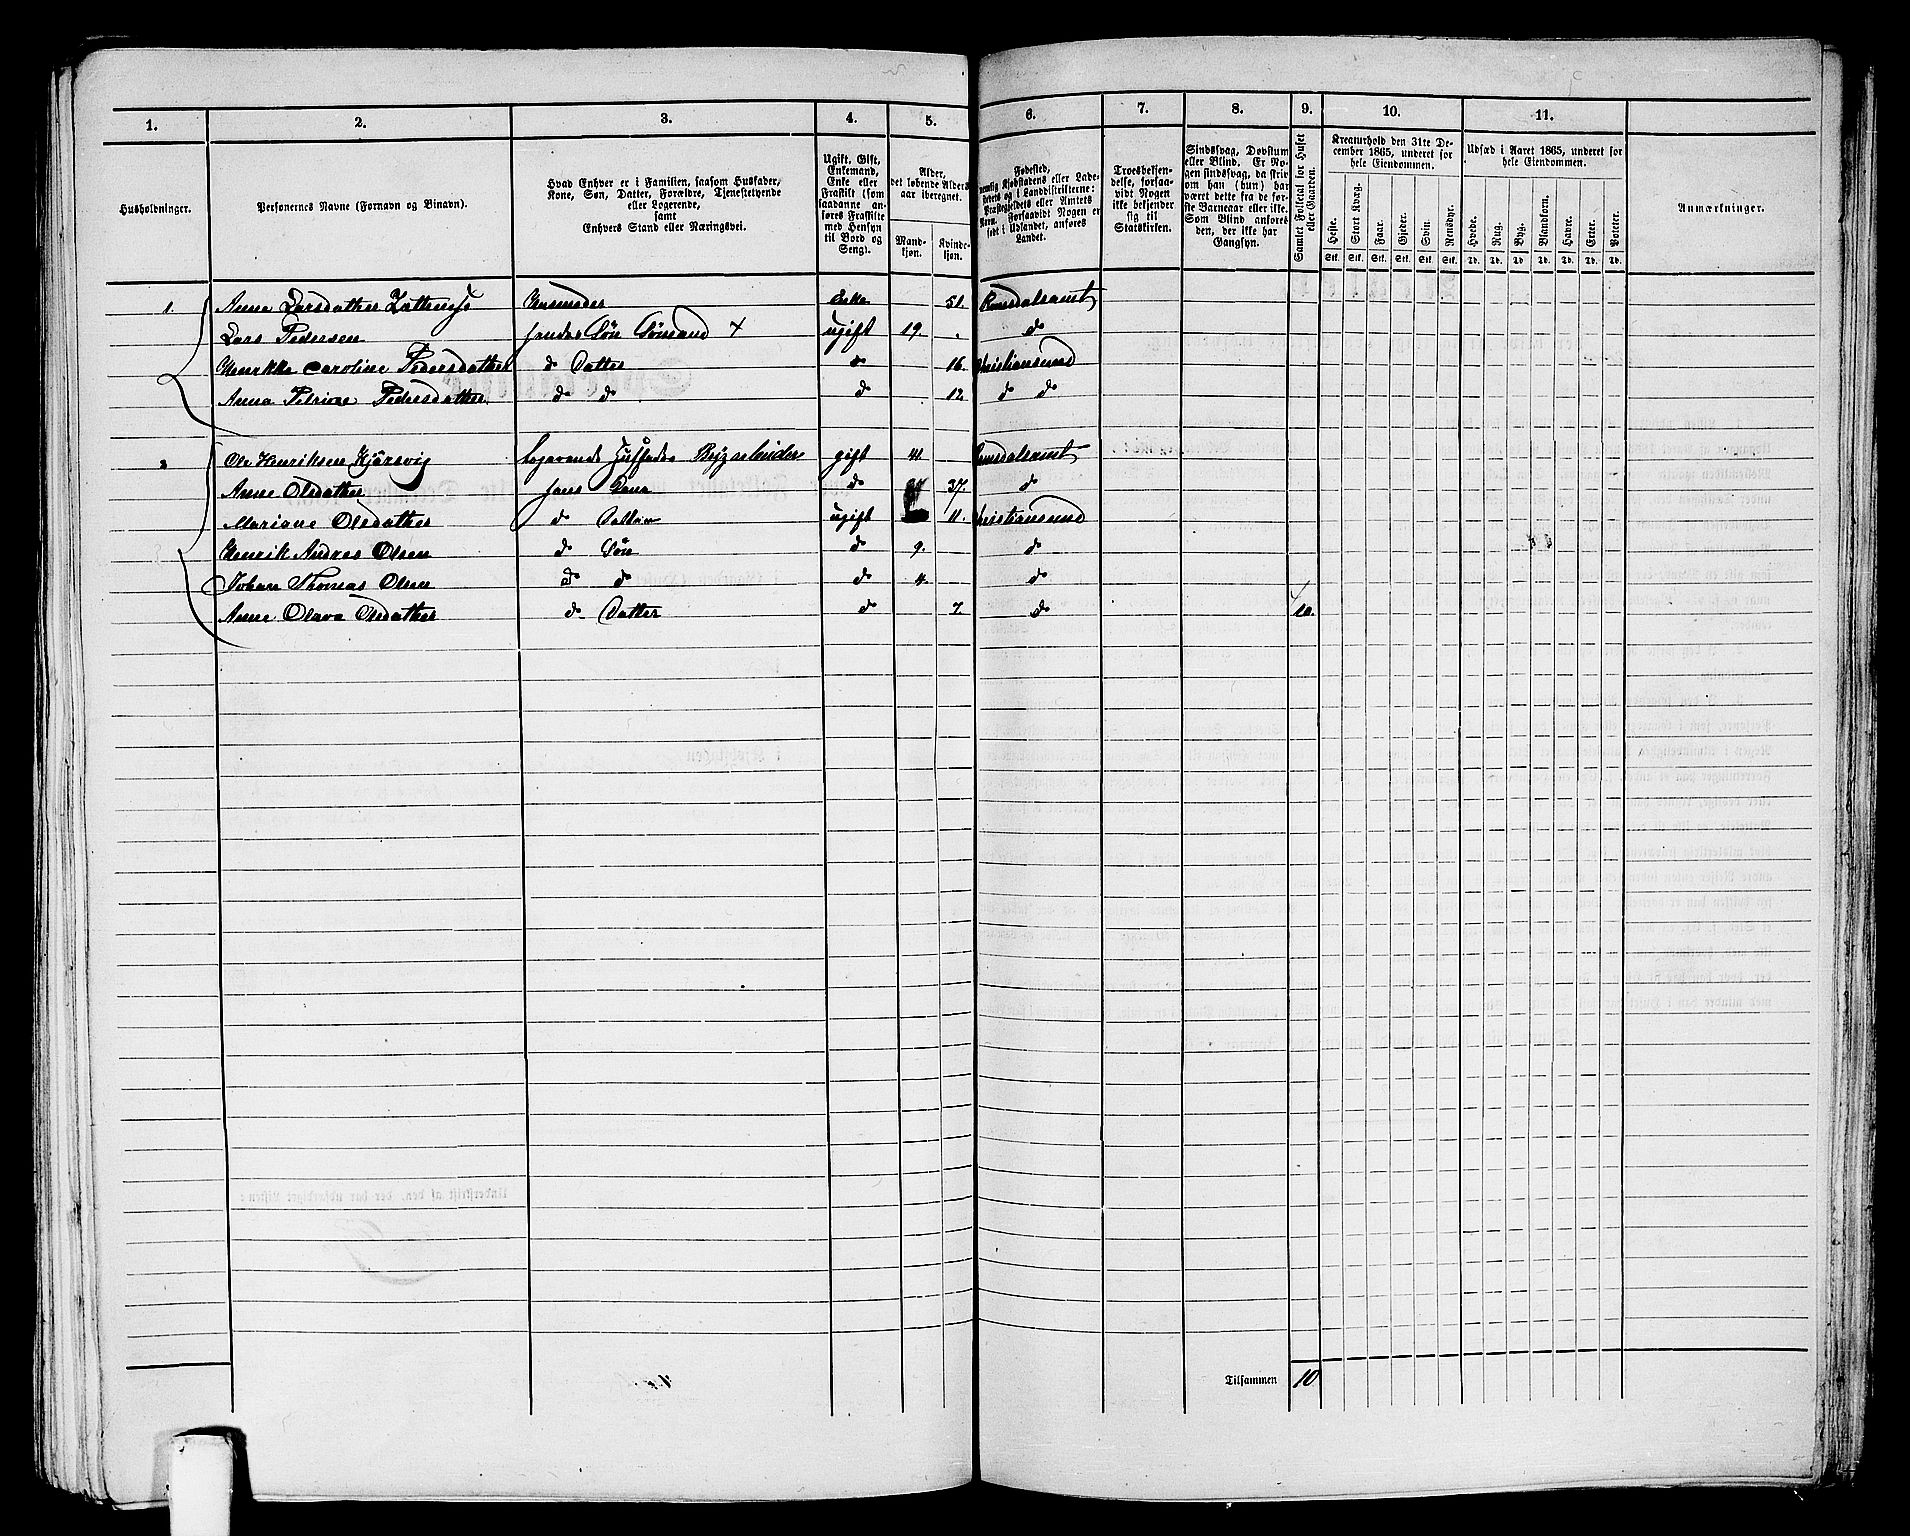 1. 2. 3. 4. 5. 6. 7. 8. 9. 10. 11.
Husholdninger.
Personernes Navne (Fornavn og Binavn).
Hvad Enhver er i Familien, saasom Husfader,
Kone, Søn, Datter, Forældre, Tjenestetyende
eller Logerende,
samt
Enhvers Stand eller Næringsvei.
Ugift, Gift,
Enkemand,
Enke eller
Fraskilt (som
saadanne an-
føres Fraskilte
med Hensyn
til Bord og
Seng).
Alder,
det løbende Alders-
aar iberegnet.
Mand-
kjøn.
Kvinde-
kjøn.
Fødested,
nemlig Kjøbstadens eller Lade-
stedets og i Landdistrikterne:
Præstegjeldets eller Amtets
Navn. Forsaavidt Nogen er
født i Udlandet, anføres
Landet.
Troesbekjen-
delse, forsaa-
vidt Nogen
ikke bekjender
sig til
Statskirken.
Sindssvag, Døvstum
eller Blind. Er No-
gen sindssvag, da skriv
om han (hun) har
været dette fra de før-
ste Barneaar eller ikke.
Som Blind anføres
den, der ikke har
Gangsyn.
Samlet Folketal for Huset
eller Gaarden.
Kreaturhold den 31te De-
cember 1865, underet for
hele Eiendommen.
Heste. Stort Kvæg. Faar. Gjeder. Svin. Rensdyr.
Stk. Stk. Stk. Stk. Stk. Stk.
Udsæd i Aaret 1865, underet for
hele Eiendommen.
Hvede. Rug. Byg. Blandkorn. Havre. Erter. Poteter.
Td. Td. Td. Td. Td. Td. Td.
Anmærkninger.
1. Anne Larsdatter Husmoder Enke 51. Romsdalsamt
Lars Pedersen hendes Søn Sømand + ugift 19. do
Henrikke Caroline Pedersdatter do Datter do 16. Christiansund
Anna Petrine Pedersdatter do do do 12. do do
2 Ole Henriksen Kjørsvig Logerende Husfader gift 41 Romsdalsamt
Anne Olsdatter hans Kone do 37. do
Mariane Olsdatter do Datter ugift 11. Christiansund
Henrik Andres Olsen do Søn do 9. do
Johan Thomas Olsen do do do 4. do
Anne Olava Olsdatter do Datter do 7. do 10.
Tilsammen 10